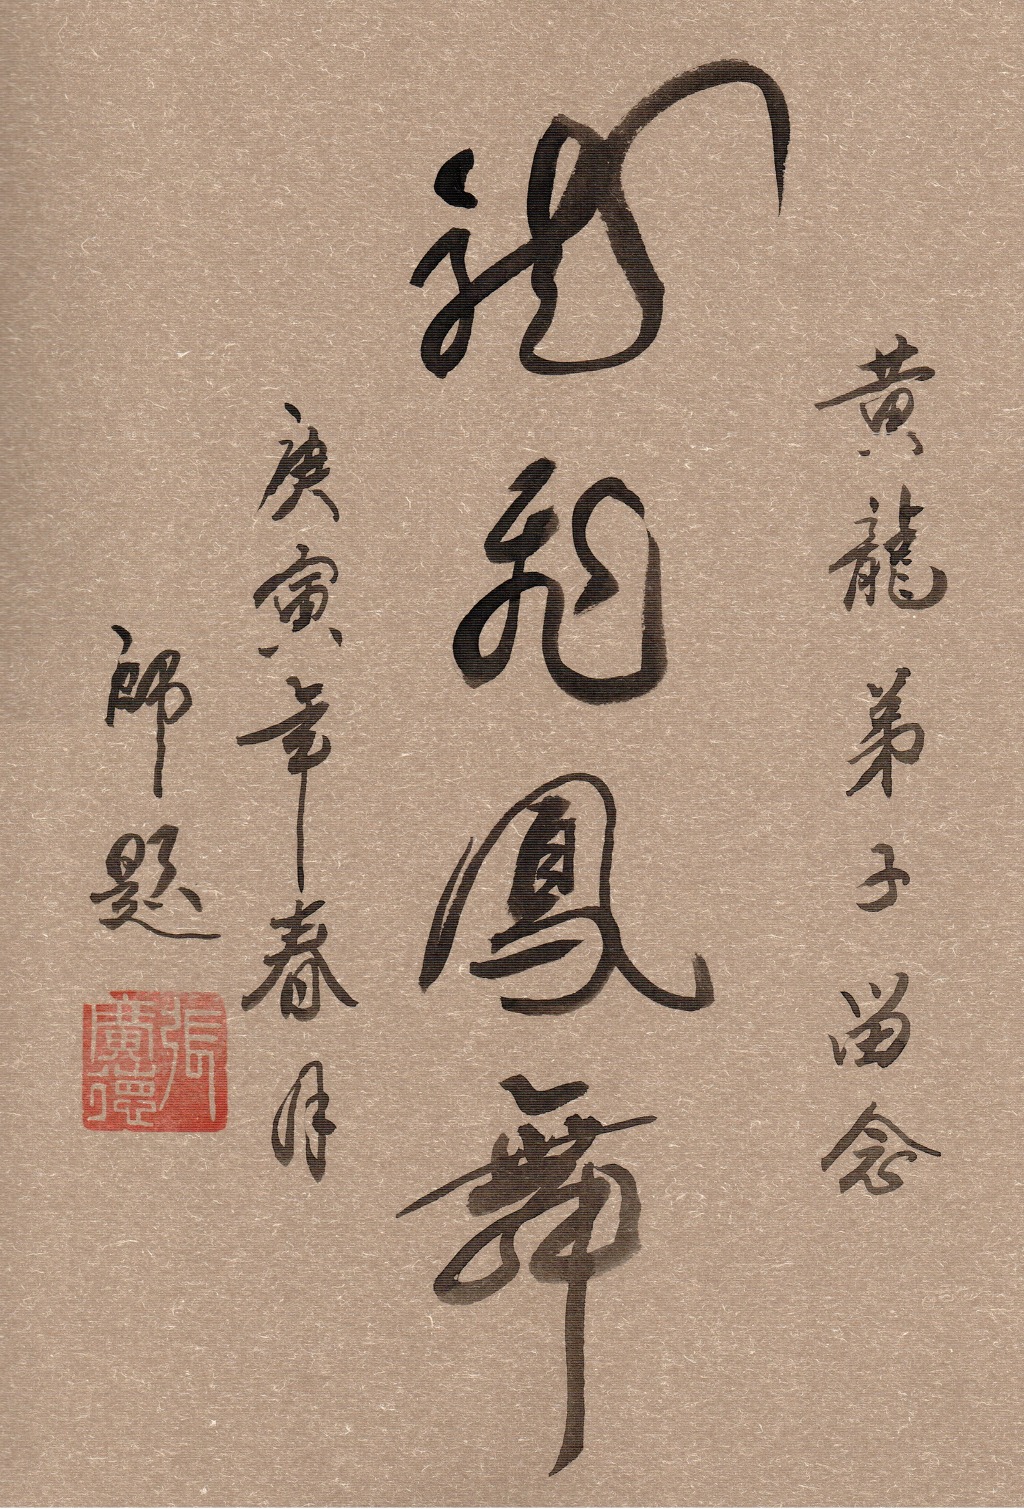 黄龍弟子留念
龍飛鳳舞
庚寅年春月
師題
張廣德